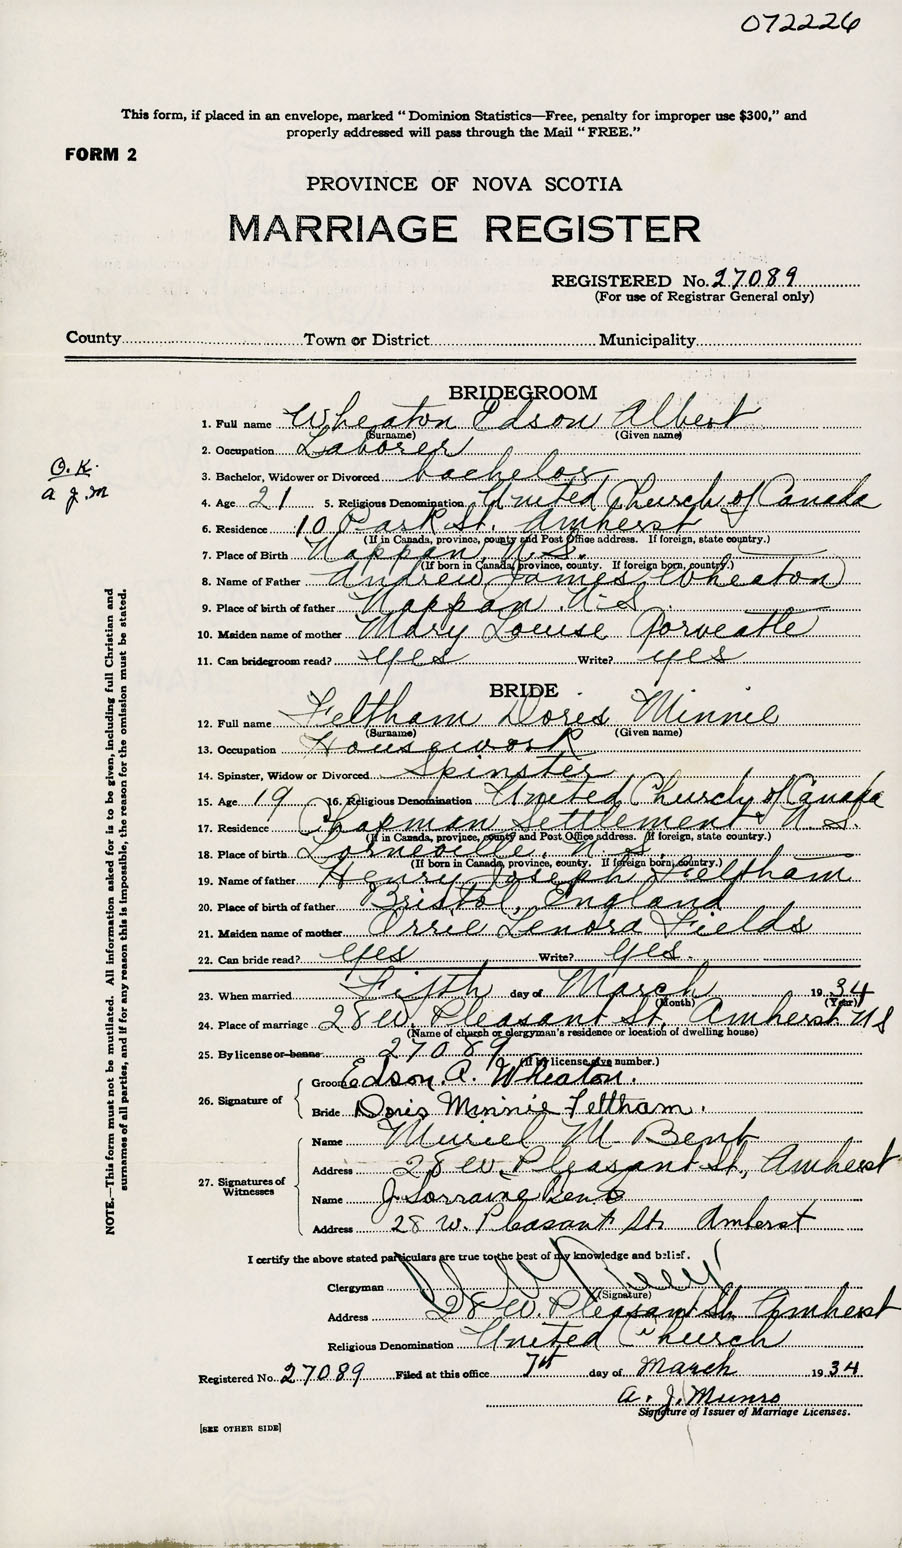 072226
This form, if placed in an envelope, marked "Dominion Statistics—Free, penalty for improper use $300," and
properly addressed will pass through the Mail "FREE."
FORM 2
PROVINCE OF NOVA SCOTIA
MARRIAGE REGISTER
REGISTERED No. 27089
(For use of Registrar General only)
County Town or District Municipality
BRIDEGROOM
1. Full name Wheaton Edson Albert
(Surname) (Given name)
2. Occupation Laborer
3. Bachelor, Widower or Divorced bachelor
O.K.
A J. M
4. Age 21 5. Religious Denomination United Church of Canada
6. Residence 10 Park St. Amherst
(If in Canada, province, county and Post Office address. If foreign, state country.)
7. Place of Birth Nappan, N.S.
(If born in Canada, province, county. If foreign born, country.)
8. Name of Father Andrew James Wheaton
9. Place of birth of father Nappan N.S.
10. Maiden name of mother Mary Louise
11. Can bridegroom read? yes Write? yes
BRIDE
12. Full name Feltham Doris Minnie
(Surname) (Given name)
13. Occupation Housework
14. Spinster, Widow or Divorced Spinster
15. Age 19 16. Religious Denomination United Church of Canada
17. Residence Chapman Settlement N.S.
(If in Canada, province, county and Post Office address. If foreign, state country.)
18. Place of birth Lorneville, N.S.
(If born in Canada, province, county. If foreign born, country.)
19. Name of father Henry Joseph Feltham
20. Place of birth of father Bristol, England
21. Maiden name of mother Orrie Lenora Fields
22. Can bride read? yes Write? yes.
23. When married Fifth day of March 1934
(Month) (Year)
24. Place of marriage 28 W. Pleasant St, Amherst NS
(Name of church or clergyman's residence or location of dwelling house)
25. By license or banns 27089
(If by license give number.)
26. Signature of
Groom Edson. A. Wheaton.
Bride Doris Minnie Feltham.
27. Signatures of Witnesses
Name Muriel M. Bent
Address 28 W. Pleasant St., Amherst
Name J Lorraine Bent
Address 28 W. Pleasant St. Amherst
I certify the above stated particulars are true to the best of my knowledge and belief.
Clergyman
(Signature)
Address 28 W. Pleasant St. Amherst
Religious Denomination United Church
Registered No. 27089 Filed at this office 7th day of March 1934
A. J. Munro
Signature of Issuer of Marriage Licenses.
[SEE OTHER SIDE]
NOTE.—This form must not be mutilated. All information asked for is to be given, including full Christian and
surnames of all parties, and if for any reason this is impossible, the reason for the omission must be stated.